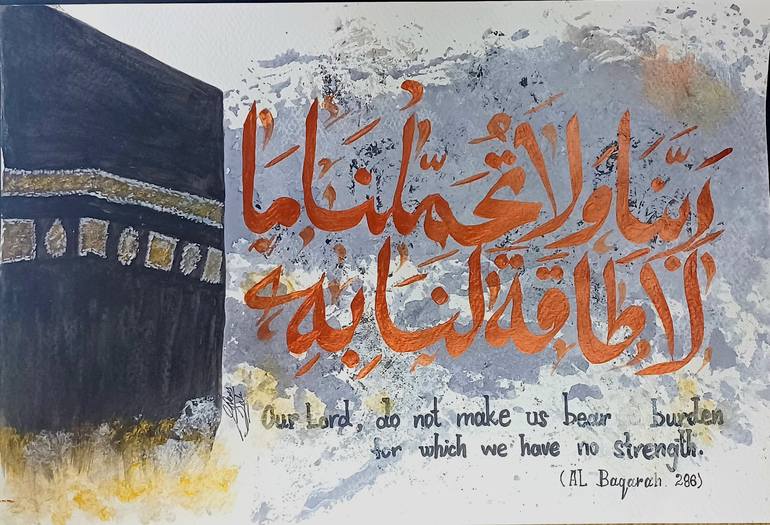 رَبَّنَا وَلَا تُحَمِّلْنَا مَا
لَا طَاقَةَ لَنَا بِهِ
Our Lord, do not make us bear burden
for which we have no strength.
(AL Baqarah 286)